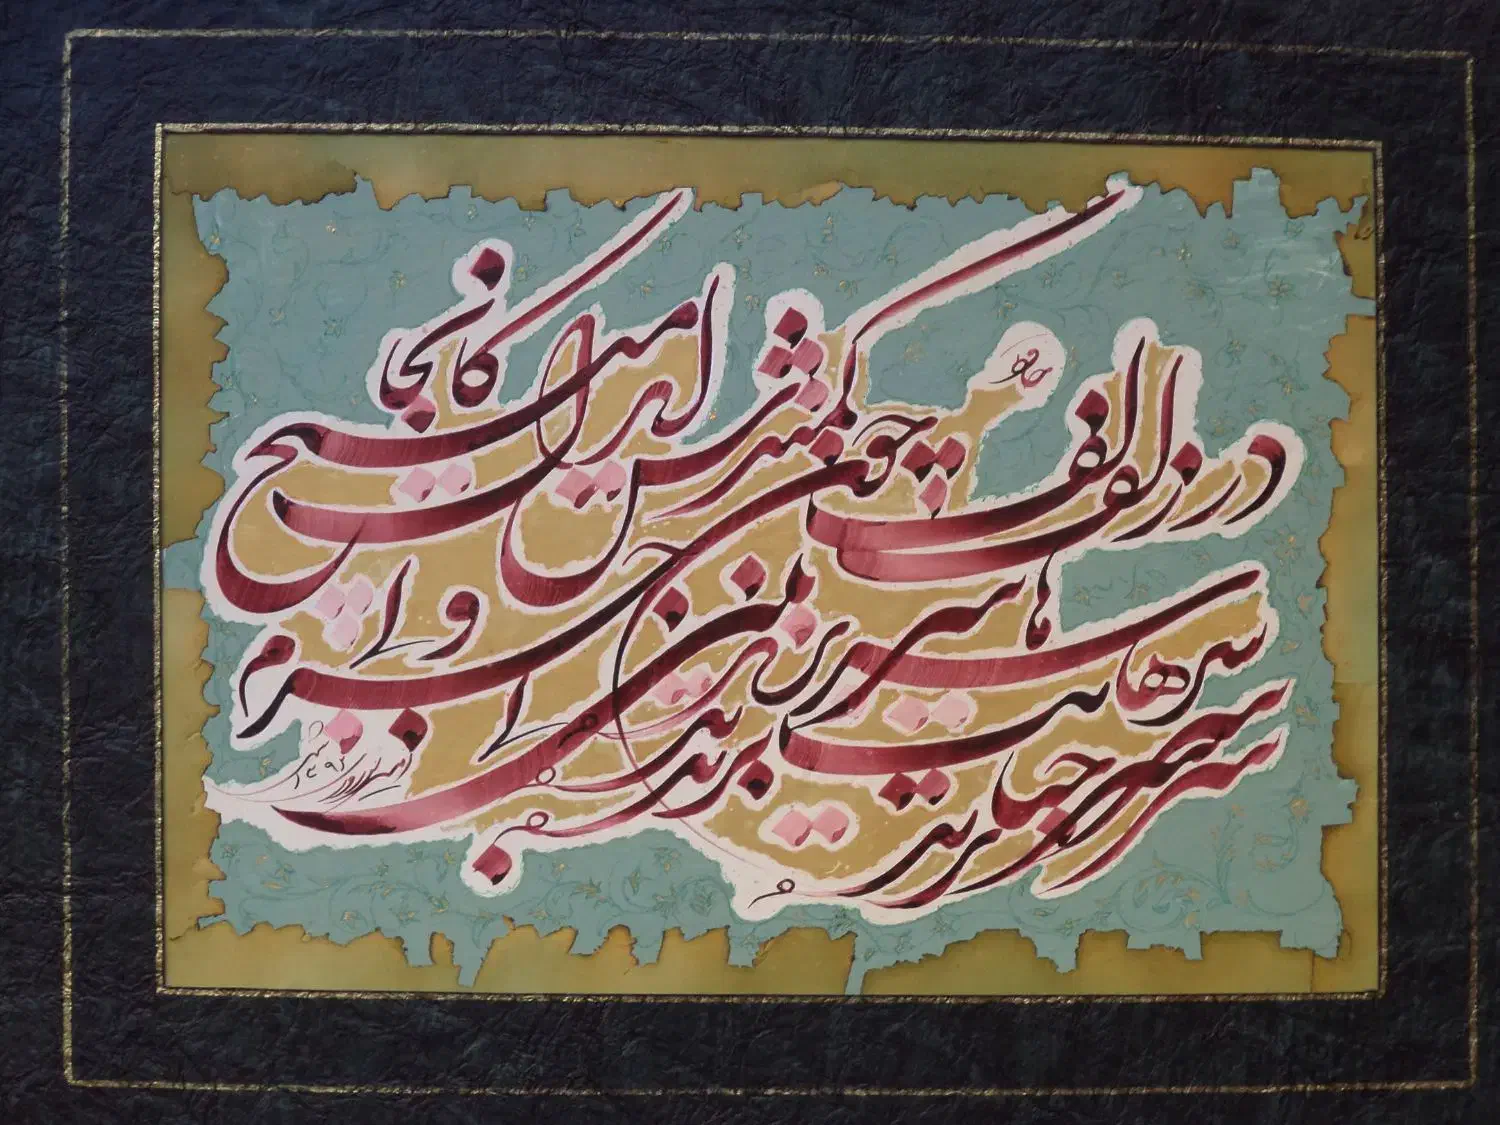 حافظ
در زلف چون کمندش ای دل مپیچ کانجا
سرها بریده بینی بی جرم و بی جنایت